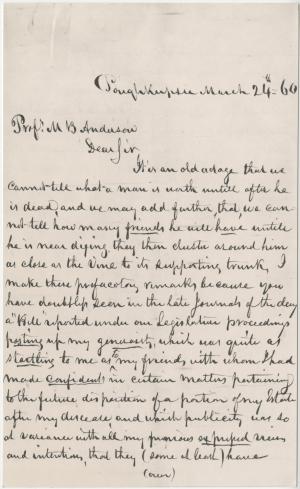 Poughkeepsie March 24th 60
Profr. M B Anderson
Dear Sir,
It is an old adage that we
cannot tell what a man is worth untill after he
is dead, and we may add further, that we can-
not tell how many friends he will have untill
he is near dying they then cluster around him
as close as the Vine to its supporting trunk, I
make these prefactory remarks because you
have doubtless seen in the late Journals of the day
a "Bill" reported under our Legislature proceedings
posting up my generosity, which was quite as
startling to me as to my friends with whom I had
made confidents in certain matters pertaining
to the future disposition of a portion of my Estate
after my disease, and which publicity was so
at variance with all my previous expressed views
and intentions, that they (some at least) have
(over)